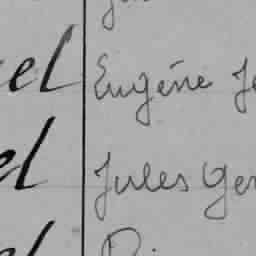 el Eugénie Je
el Jules Ger
el